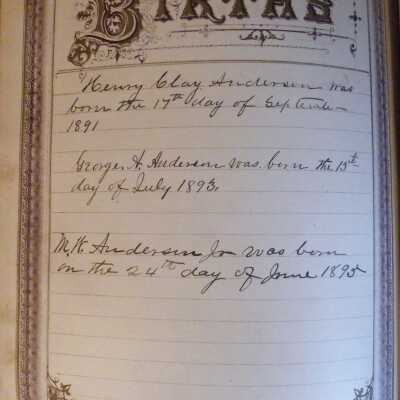 BIRTHS
Henry Clay Anderson was
born the 17th day of September
1891
George A. Anderson was born the 13th
day of July 1893,
M. H. Anderson Jr was born
on the 24th day of June 1895